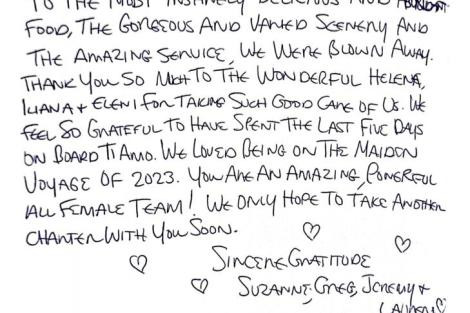 TO THE MOST INSANELY DELICIOUS AND ABUNDANT
FOOD, THE GORGEOUS AND VARIED SCENERY AND
THE AMAZING SERVICE, WE WERE BLOWN AWAY.
THANK YOU SO MUCH TO THE WONDERFUL HELENA,
ILIANA + ELENI FOR TAKING SUCH GOOD CARE OF US. WE
FEEL SO GRATEFUL TO HAVE SPENT THE LAST FIVE DAYS
ON BOARD TI AMO. WE LOVED BEING ON THE MAIDEN
VOYAGE OF 2023. YOU ARE AN AMAZING, POWERFUL
ALL FEMALE TEAM! WE ONLY HOPE TO TAKE ANOTHER
CHARTER WITH YOU SOON.
SINCERE GRATITUDE
SUZANNE, GREG, JEREMY +
LAUREN